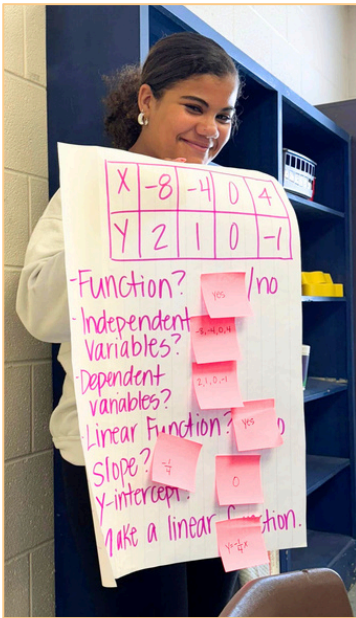 X -8 -4 0 4
Y 2 1 0 -1
-Function? yes /no
-Independent -8,-4,0,4
variables?
-Dependent 2,1,0,-1
variables?
-Linear Function? yes
Slope? -1/4
y-intercept? 0
Make a linear function.
y=-1/4x